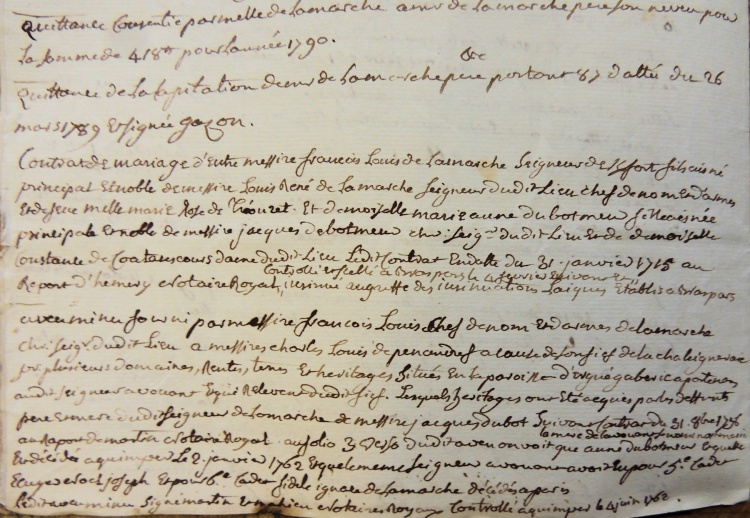 quittance Consentie par melle de Lamarche a mr de la marche pere son neveu pour
la somme de 418tt pour l'année 1790.
quittance de la Capitation de mr de Lamarche pere portant 87 datté du 26
mars 1789 Et signée gazon.
Contrat de mariage d'Entre messire francois Louis de Lamarche Seigneur de fils aisné
principal Et noble de messire Louis René de La marche Seigneur dudit Lieu chef de nom Et d'armes
Et de feue melle marie Rose de Tréouret. Et demoiselle marie anne du botmeur fille aisnée
principale Et noble de messire jacques de botmeur chr. Seigr. du dit Lieu Et de demoiselle
Constance de Coatanscours dame dudit Lieu Ledit Contrat En datte du 31. janvier 1715 au
Controllé et scellé a le 4 fevrier suivant
Raport d'hemery Notaire Royal, insinué au greffe des insinuations Laiques Etablis a
aveu minu fourni par messire francois Louis Chef de nom Et d'armes de Lamarche
chr. seigr. du dit Lieu a messire charles Louis de penandref a cause de son fief de la chataigneraie
pour plusieurs domaines, Rentes, tenes Et heritages Situés En la paroisse d'Ergué gaberic apartenans
audit seigneur avouant Et qui Relevent dudit fief. Lesquels heritages ont Eté acquis par les deffunts
pere Et mere dudit seigneur de Lamarche de messire jacques du bot Suivant Contrat du 31. 8bre 1736
au Raport de martin Notaire Royal. au folio 3 Verso dudit aveu on voit que anne du botmeur
la mere de l'avouant
Est décédés a quimper Le 2. janvier 1762 Et que le meme Seigneur avouant avoit Eu pour 5e. Cadet
Eugene Joseph Et pour 6e. Cadet fidele ignace de Lamarche décédés a paris
Ledit aveu minu signé martin Et Notaires Royaux Controllé a quimper le 4 juin 1762.